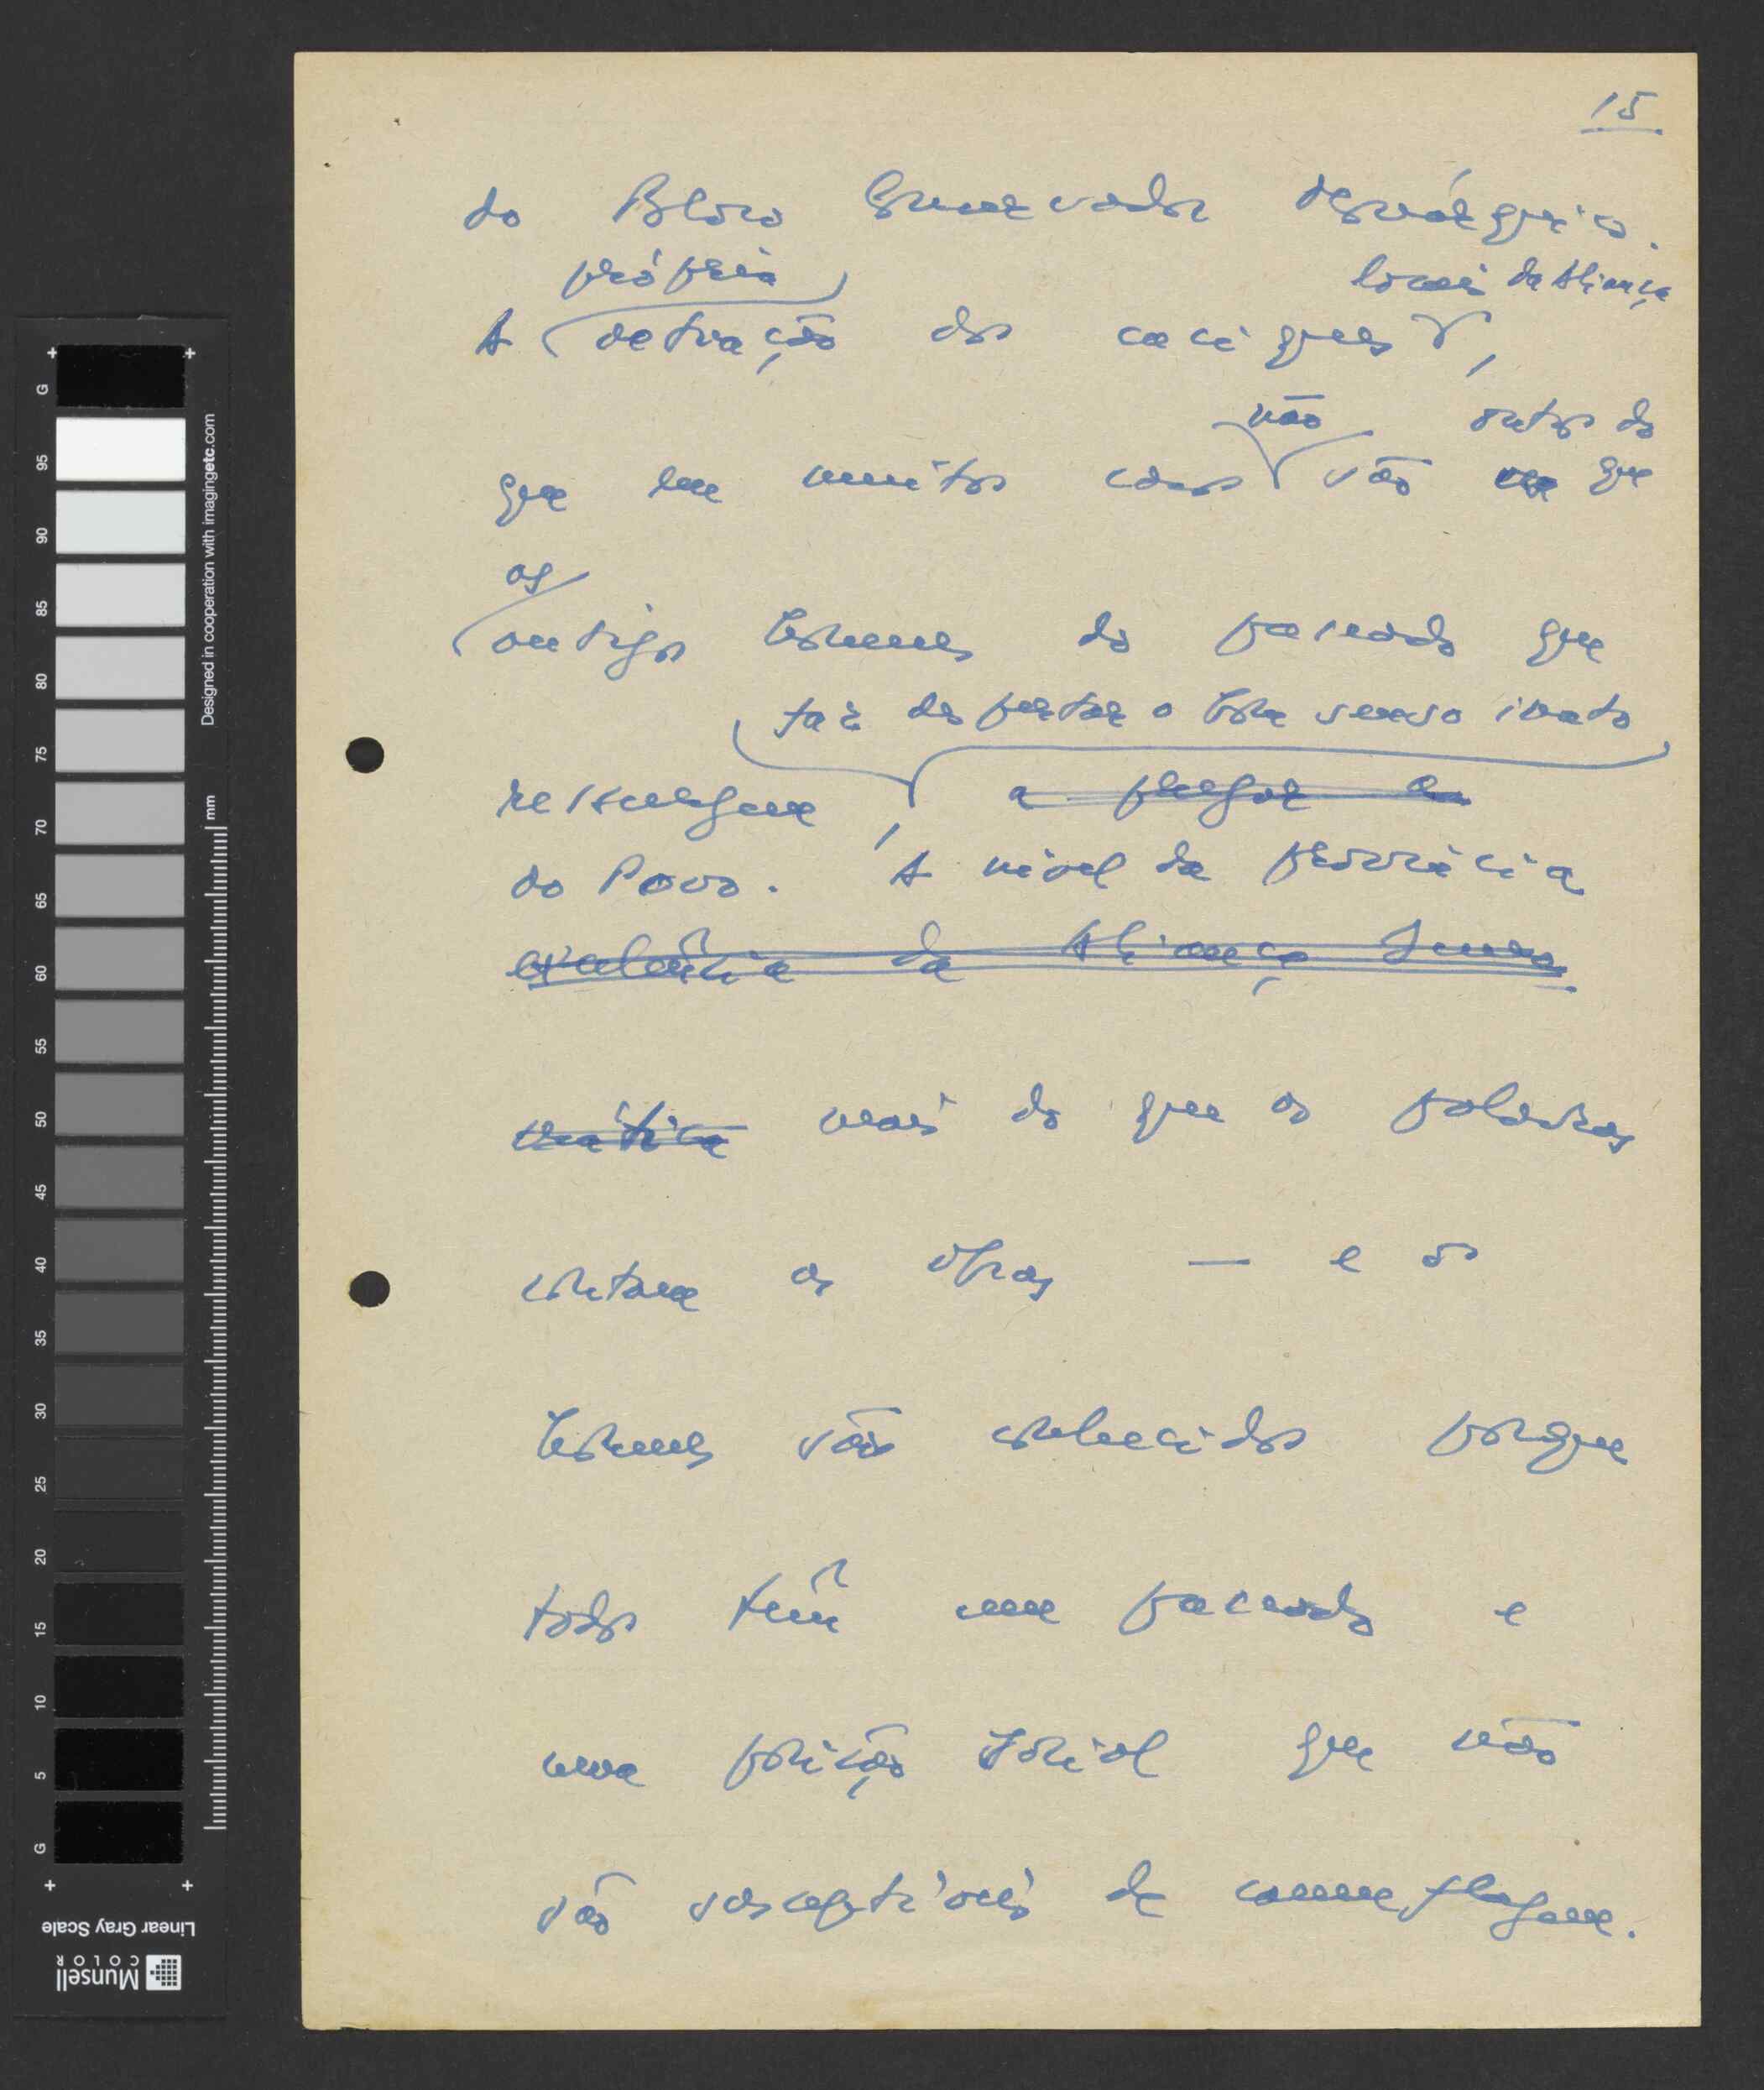 15
do Bloco Conservador
própria locais da Aliança
A actuação dos caciques,
não outros do
que em muitos casos são que
os
antigos homens do passado que
faz despertar o bom senso inato
ressurgem, a pregar
do Povo. A nível da província
da Aliança
mais do que as palavras
contam as obras — e os
homens são conhecidos porque
todos têm um passado e
uma posição social que não
são susceptíveis de camuflagem.
Designed in cooperation with imagingetc.com
mm
G 95 90 85 80 75 70 65 60 55 50 45 40 35 30 25 20 15 10 5 G
Linear Gray Scale
Munsell
COLOR